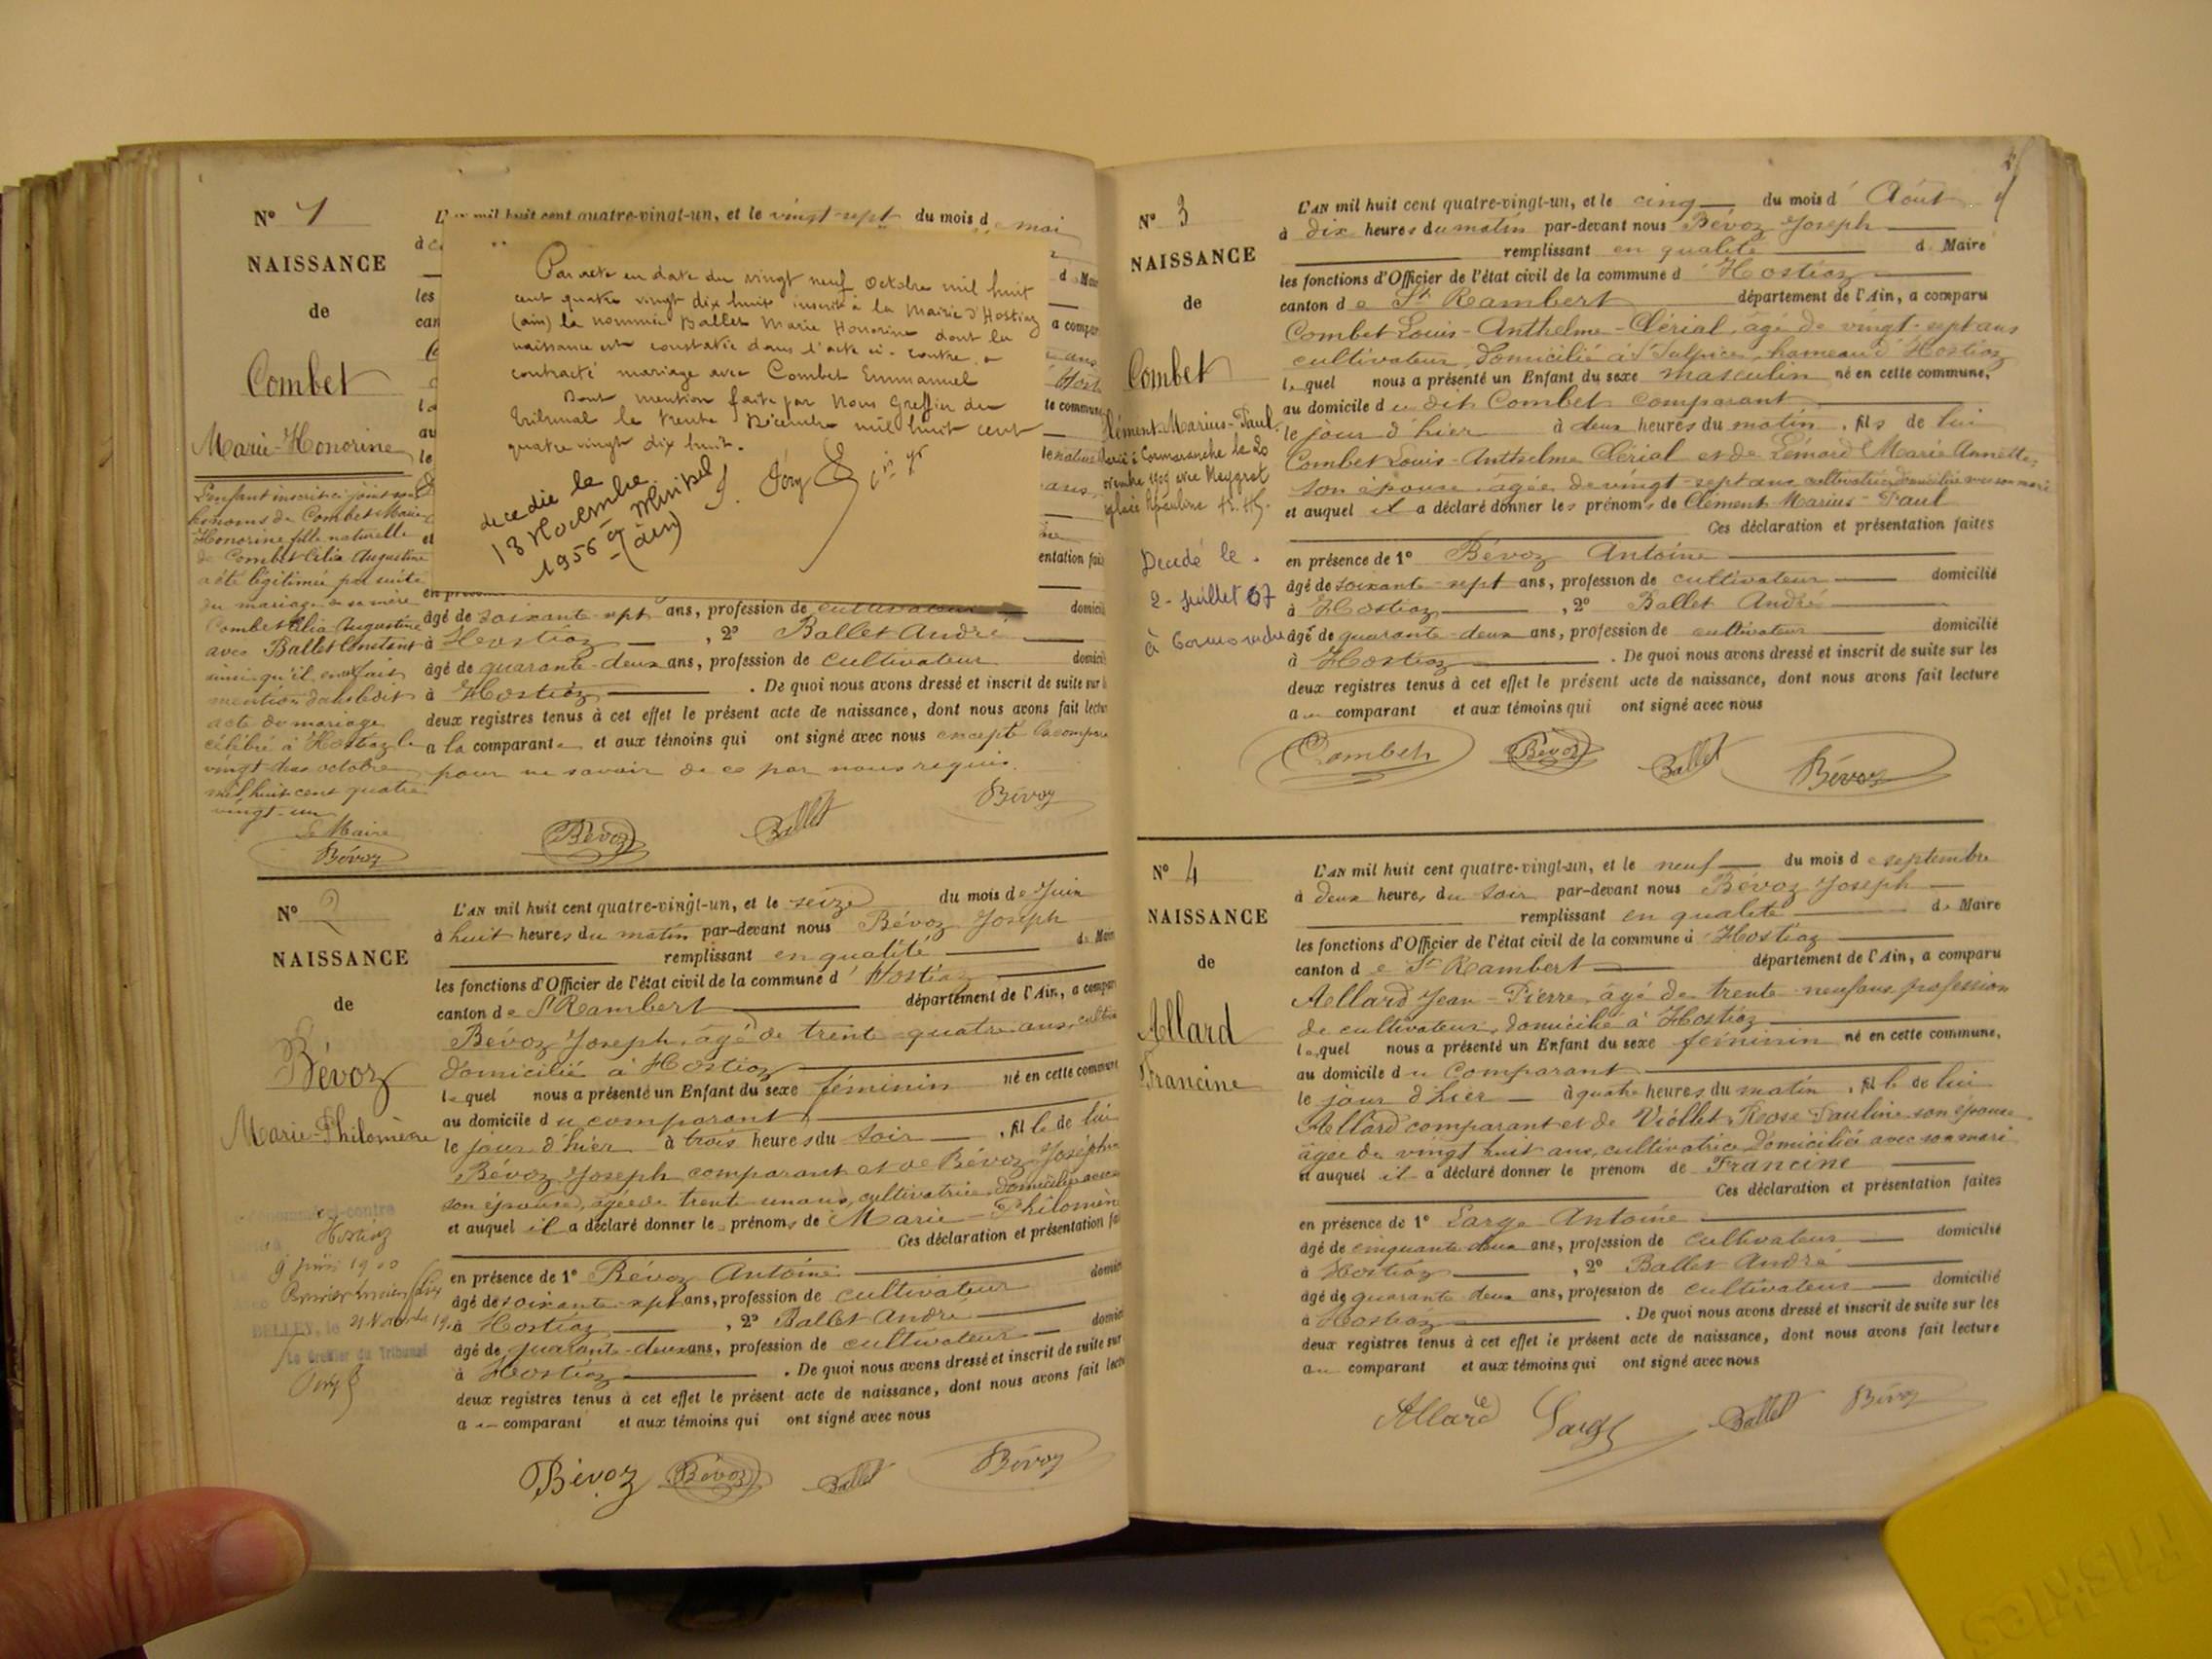 N° 1
NAISSANCE
de
Combet
Marie-Honorine
L'enfant inscrit ci-joint sous
les noms de Combet Marie
Honorine fille naturelle
de Combet Célia Augustine
a été légitimée par suite
du mariage de sa mère
Combet Célia Augustine
avec Ballet Constant
ainsi qu'il en est fait
mention dans ledit
acte de mariage
célébré à Hostiaz le
vingt deux octobre
mil huit cent quatre
vingt-un
Le Maire
Bévoz
L'an mil huit cent quatre-vingt-un, et le vingt-sept du mois de mai
Par acte en date du vingt neuf Octobre mil huit
cent quatre vingt dix huit inscrit à la Mairie d'Hostiaz
(ain) la nommée Ballet Marie Honorine dont la
naissance est constatée dans l'acte ci-contre a
contracté mariage avec Combet Emmanuel
Dont mention faite par Nous Greffier du
Tribunal le trente Décembre mil huit cent
quatre vingt dix huit.
decedée le
18 Novembre
1956 à
(ain)
âgé de soixante-sept ans, profession de cultivateur domicilié
à Hostiaz, 2° Ballet André
âgé de quarante-deux ans, profession de cultivateur domicilié
à Hostiaz. De quoi nous avons dressé et inscrit de suite sur
deux registres tenus à cet effet le présent acte de naissance, dont nous avons fait lecture
a la comparante et aux témoins qui ont signé avec nous excepté la compar
pour ne savoir de ce par nous requis.
Bévoz Ballet Bévoz
N° 2
NAISSANCE
de
Bévoz
Marie-Philomène
Hostiaz
9 juin 1910
BELLEY, le 21 Novembre 19
Le Greffier du Tribunal
L'AN mil huit cent quatre-vingt-un, et le seize du mois de Juin
à huit heures du matin par-devant nous Bévoz Joseph
remplissant en qualité de Maire
les fonctions d'Officier de l'état civil de la commune d'Hostiaz
canton de St Rambert département de l'Ain, a compar
Bévoz Joseph, âgé de trente-quatre ans, cultiv
domicilié à Hostiaz
lequel nous a présenté un Enfant du sexe féminin né en cette commune
au domicile du comparant
le jour d'hier à trois heures du soir, fille de lui
Bévoz Joseph comparant et de Bévoz Joséphine
son épouse, âgée de trente-un ans, cultivatrice, domiciliée avec
et auquel il a déclaré donner les prénoms de Marie-Philomène
Ces déclaration et présentation fai
en présence de 1° Bévoz Antoine
âgé de soixante-sept ans, profession de cultivateur domici
à Hostiaz, 2° Ballet André
âgé de quarante-deux ans, profession de cultivateur domici
à Hostiaz. De quoi nous avons dressé et inscrit de suite sur
deux registres tenus à cet effet le présent acte de naissance, dont nous avons fait lectu
au comparant et aux témoins qui ont signé avec nous
Bévoz Bévoz Ballet Bévoz
N° 3
NAISSANCE
de
Combet
Clément-Marius-Paul
Marié à Cormaranche le 20
novembre 1909 avec Neyret
Décédé le
2 Juillet 67
à Cormaranche
L'AN mil huit cent quatre-vingt-un, et le cinq du mois d'Août
à dix heures du matin par-devant nous Bévoz Joseph
remplissant en qualité de Maire
les fonctions d'Officier de l'état civil de la commune d'Hostiaz
canton de St Rambert département de l'Ain, a comparu
Combet Louis-Anthelme-Clérial, âgé de vingt-sept ans
cultivateur, domicilié à St Sulpice, hameau d'Hostiaz
lequel nous a présenté un Enfant du sexe masculin né en cette commune,
au domicile du dit Combet comparant
le jour d'hier à deux heures du matin, fils de lui
Combet Louis-Anthelme Clérial et de Lémord Marie Annette,
son épouse, âgée de vingt-sept ans cultivatrice domiciliée avec son mari
et auquel il a déclaré donner les prénoms de Clément-Marius-Paul
Ces déclaration et présentation faites
en présence de 1° Bévoz Antoine
âgé de soixante-sept ans, profession de cultivateur domicilié
à Hostiaz, 2° Ballet André
âgé de quarante-deux ans, profession de cultivateur domicilié
à Hostiaz. De quoi nous avons dressé et inscrit de suite sur les
deux registres tenus à cet effet le présent acte de naissance, dont nous avons fait lecture
au comparant et aux témoins qui ont signé avec nous
Combet Bévoz Ballet Bévoz
N° 4
NAISSANCE
de
Allard
Francine
L'AN mil huit cent quatre-vingt-un, et le neuf du mois de septembre
à deux heures du soir par-devant nous Bévoz Joseph
remplissant en qualité de Maire
les fonctions d'Officier de l'état civil de la commune d'Hostiaz
canton de St Rambert département de l'Ain, a comparu
Allard Jean-Pierre, âgé de trente-neuf ans profession
de cultivateur, domicilié à Hostiaz
lequel nous a présenté un Enfant du sexe féminin né en cette commune,
au domicile du comparant
le jour d'hier à quatre heures du matin, fille de lui
Allard comparant et de Viollet Rose Pauline son épouse
âgée de vingt huit ans, cultivatrice domiciliée avec son mari
et auquel il a déclaré donner le prénom de Francine
Ces déclaration et présentation faites
en présence de 1° Large Antoine
âgé de cinquante deux ans, profession de cultivateur domicilié
à Hostiaz, 2° Ballet André
âgé de quarante deux ans, profession de cultivateur domicilié
à Hostiaz. De quoi nous avons dressé et inscrit de suite sur les
deux registres tenus à cet effet le présent acte de naissance, dont nous avons fait lecture
au comparant et aux témoins qui ont signé avec nous
Allard Large Ballet Bévoz